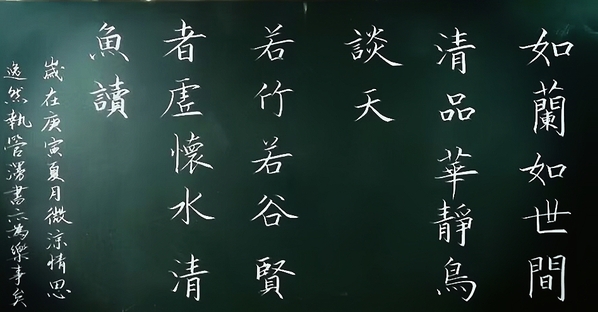 如蘭如世間
清品華靜鳥
談天
若竹若谷賢
者虛懷水清
魚讀
歲在庚寅夏月微涼情思
逸然執管漫書亦為樂事矣